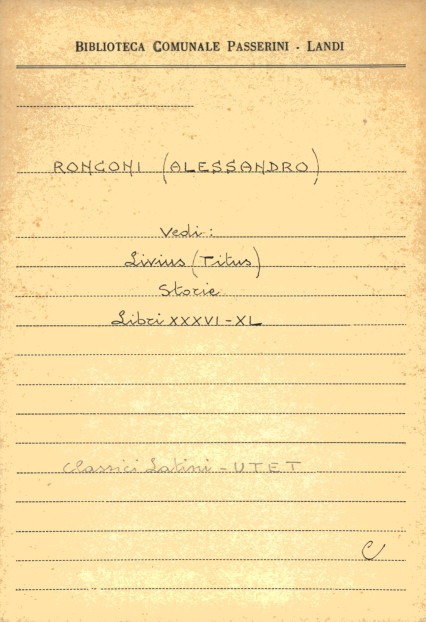 BIBLIOTECA COMUNALE PASSERINI - LANDI
RONCONI (ALESSANDRO)
Vedi:
Livius (Titus)
Storie
Libri XXXVI-XL
Classici Latini - UTET
C